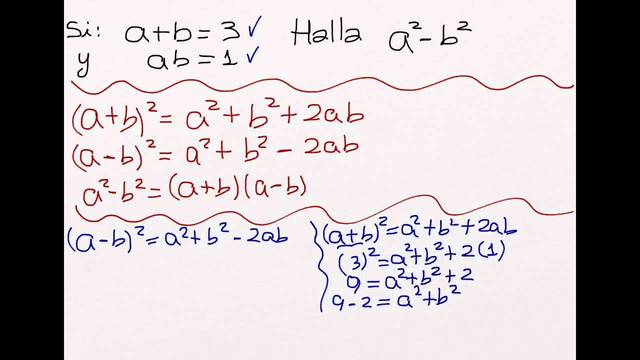 Si: a+b=3 ✓ Halla a²-b²
y ab=1 ✓
(a+b)²=a²+b²+2ab
(a-b)²=a²+b²-2ab
a²-b²=(a+b)(a-b)
(a-b)²=a²+b²-2ab
(a+b)²=a²+b²+2ab
(3)²=a²+b²+2(1)
9=a²+b²+2
9-2=a²+b²